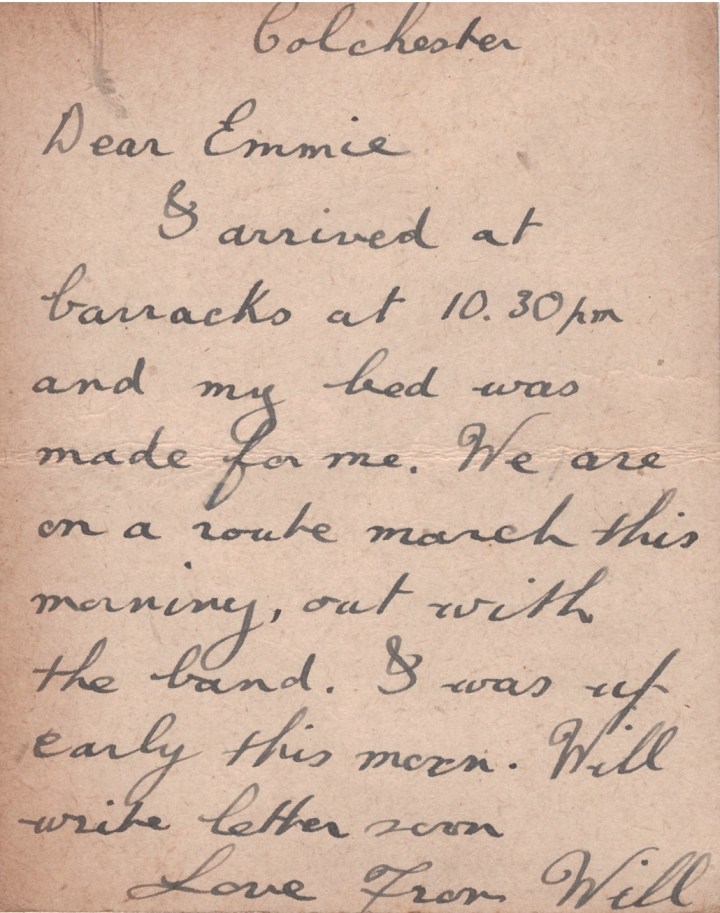 Colchester
Dear Emmie
I arrived at
barracks at 10.30pm
and my bed was
made for me. We are
on a route march this
morning, out with
the band. I was up
early this morn. Will
write letter soon
Love From Will